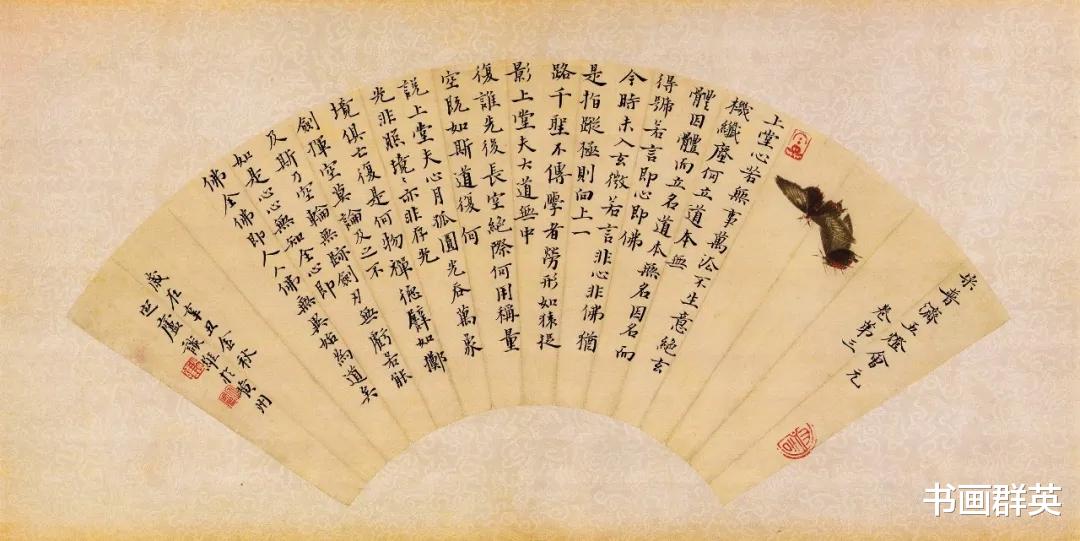 宋普濟五燈會元
卷第三
上堂心若無事萬法不生意絕玄
機纖塵何立道本無
體因體而立名道本無名因名而
得號若言即心即佛
今時未入玄微若言非心非佛猶
是指蹤極則向上一
路千聖不傳學者勞形如猿捉
影上堂夫大道無中
復誰先後長空絕際何用稱量
空既如斯道復何
說上堂夫心月孤圓光吞萬象
光非照境〻亦非存光
境俱亡復是何物禪德譬如擲
劍揮空莫論及之不
及斯乃空輪無跡劍刃無虧若能
如是心心無知全心即
佛全佛即人人佛無異始為道矣
歲在辛丑金秋
黄州
書画群英